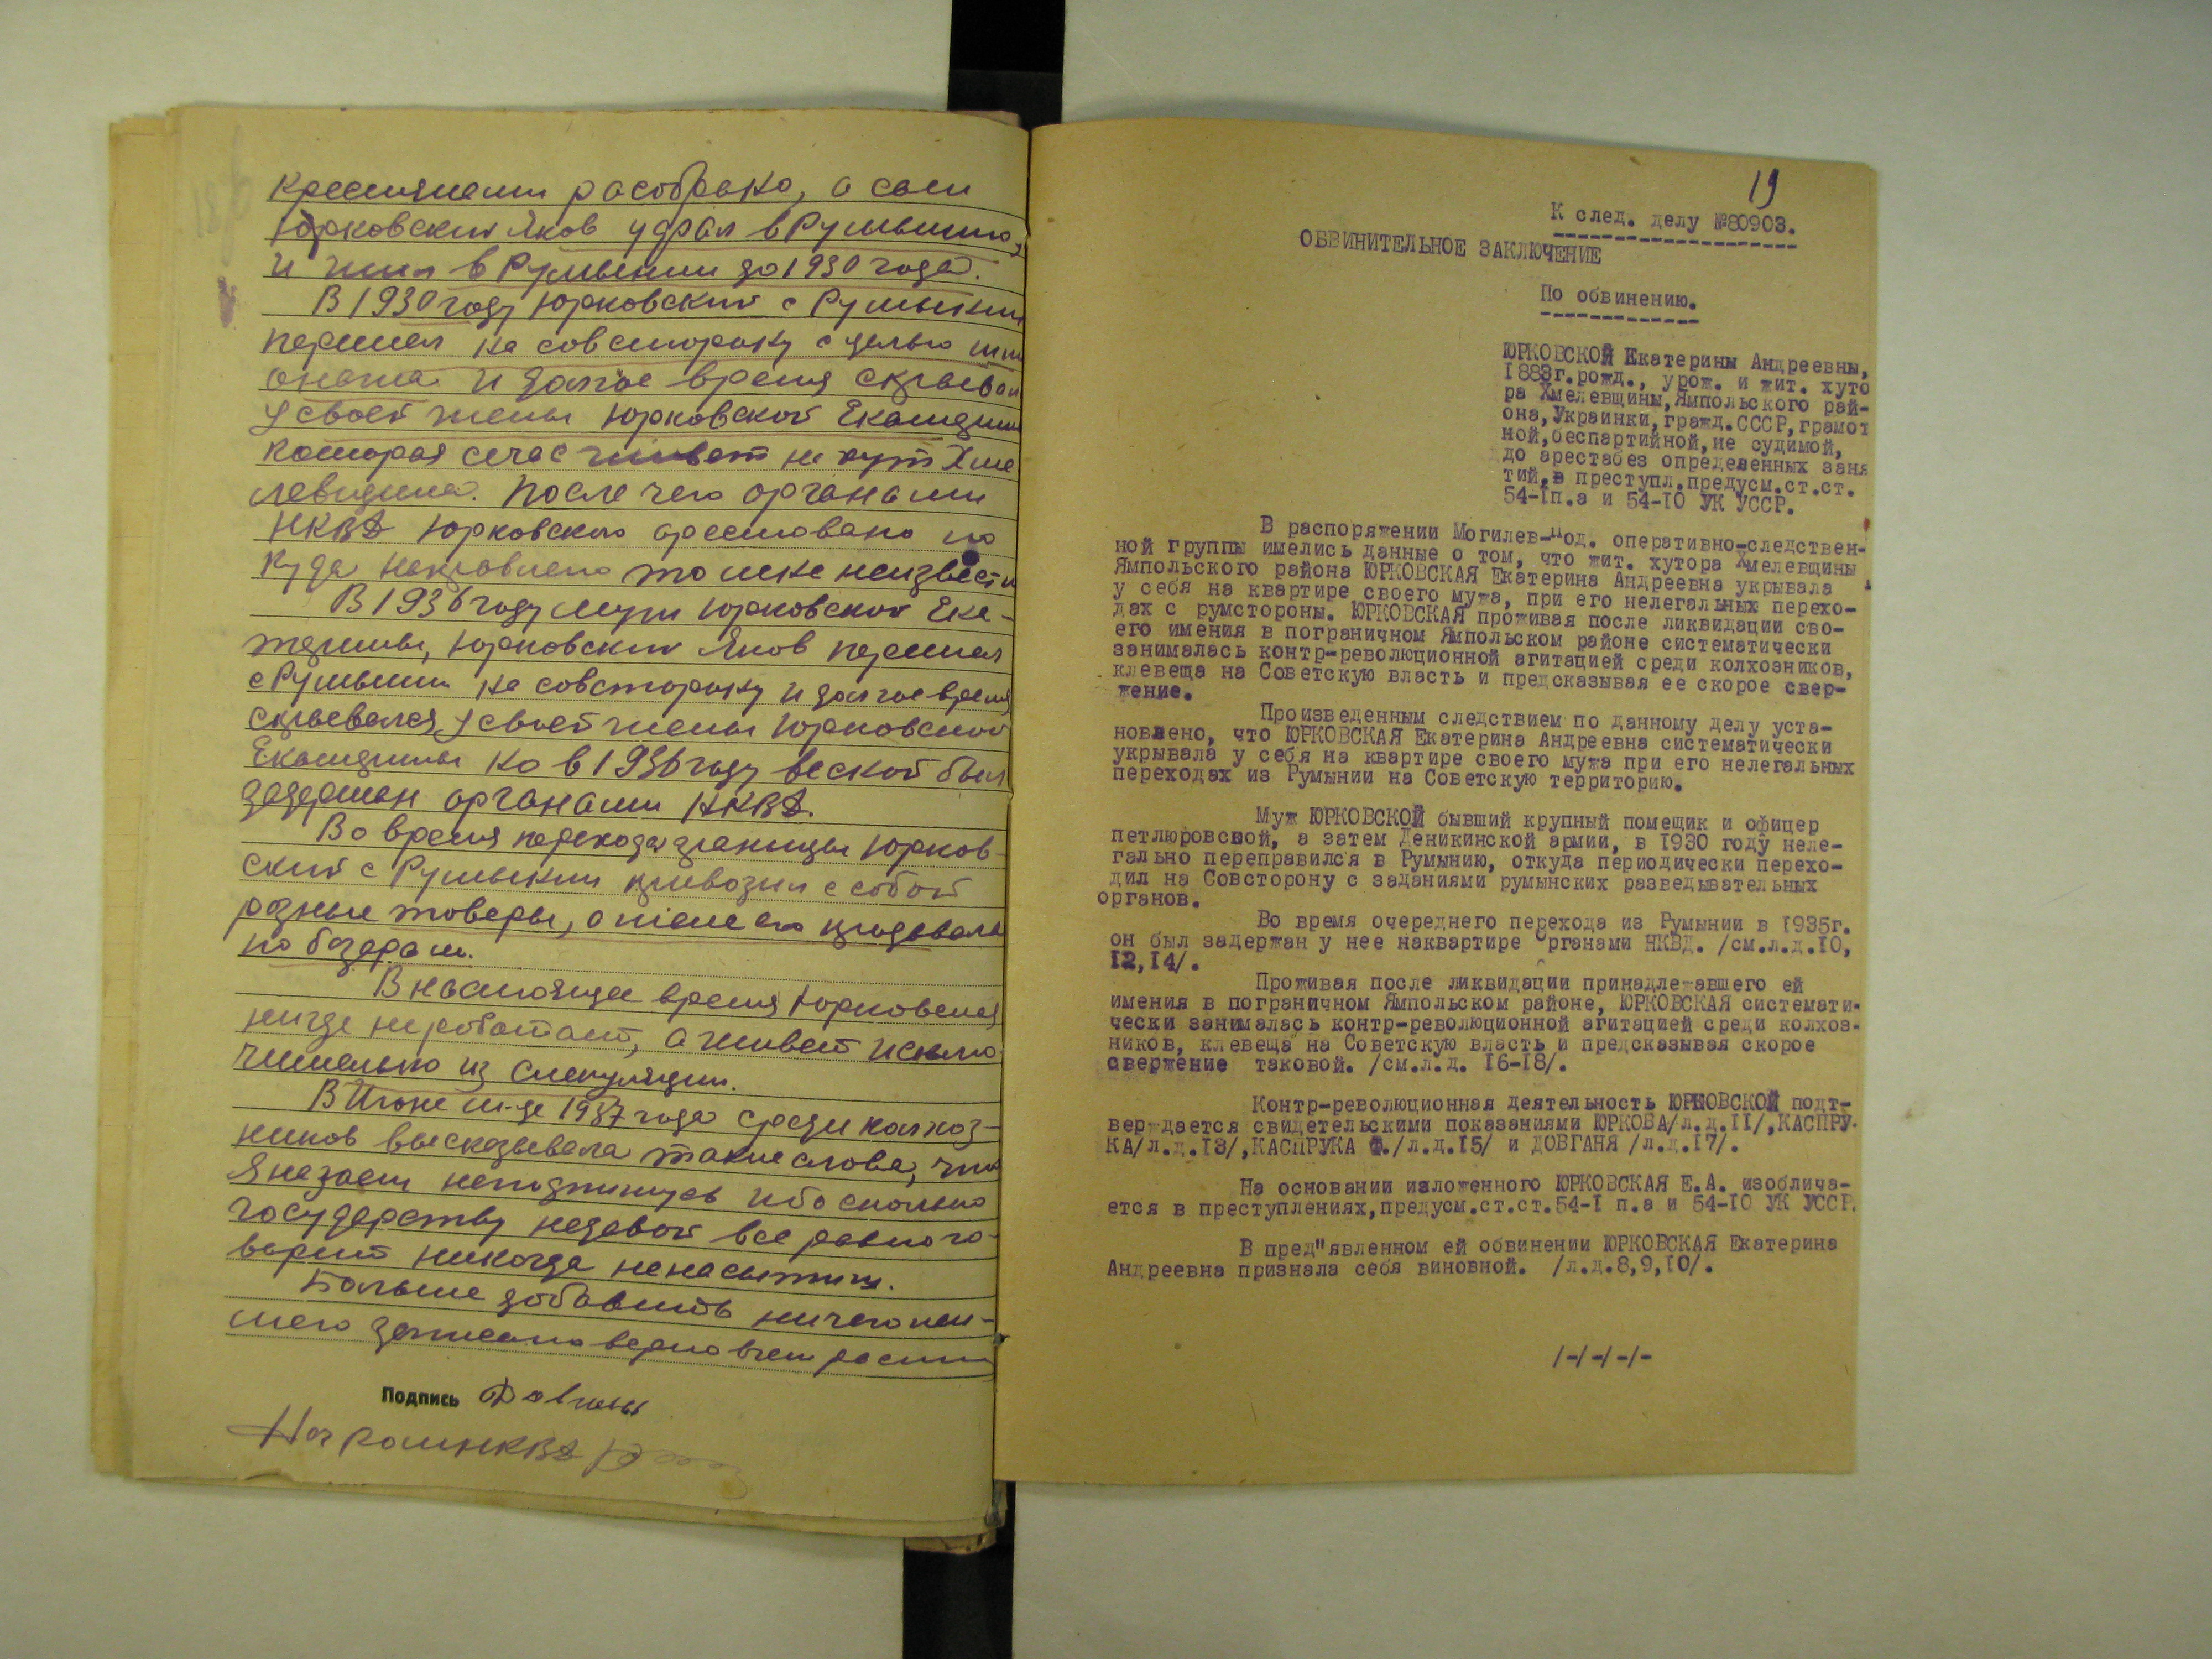 крестянами разобрано, а сам
Юрковский Яков удрал в Румынию,
и жил в Румынии до 1930 года.
В 1930 году Юрковский с Румынии
перешел на совсторону с целью шпи
онажа и долгое время скрывал
у своей жены Юрковской Екатерины
которая сечас живет на хут Хме
левщина. После чего органами
НКВД Юрковского арестовано но
куда направлено то мне неизвестн
В 1936 году муж Юрковской Ека-
терины, Юрковский Яков перешел
с Румынии на совсторону и долгое время
скрывался у своей жены Юрковской
Екатерины но в 1936 году весной был
задержан органами НКВД.
Во время перехода границы Юрков-
ский с Румынии привозил с собой
разные товары, а жена его продавала
по базарам.
В настоящее время Юрковская
нигде не работает, а живет исклю
чительно из спекуляции.
В Июне м-це 1937 года среди колхоз-
ников высказывала такие слова, что
государству недавай все равно го-
ворит никогда ненасытиш.
Больше добавить ничего неи-
мею записано верно в чем распи
Подпись Довгань
Нач РайНКВД
19
К след. делу №80903.
ОБВИНИТЕЛЬНОЕ ЗАКЛЮЧЕНИЕ
По обвинению.
ЮРКОВСКОЙ Екатерины Андреевны,
1883г.рожд., урож. и жит. хуто
ра Хмелевщины,Ямпольского рай-
она,Украинки,гражд.СССР,грамот
ной,беспартийной,не судимой,
до арестабез определенных заня
тий,в преступл.предусм.ст.ст.
54-Iп.а и 54-10 УК УССР.
В распоряжении Могилев-Под. оперативно-следствен-
ной группы имелись данные о том, что жит. хутора Хмелевщины
Ямпольского района ЮРКОВСКАЯ Екатерина Андреевна укрывала
у себя на квартире своего мужа, при его нелегальных перехо-
дах с румстороны. ЮРКОВСКАЯ проживая после ликвидации сво-
его имения в пограничном Ямпольском районе систематически
занималась контр-революционной агитацией среди колхозников,
клевеща на Советскую власть и предсказывая ее скорое свер-
жение.
Произведенным следствием по данному делу уста-
новлено, что ЮРКОВСКАЯ Екатерина Андреевна систематически
укрывала у себя на квартире своего мужа при его нелегальных
переходах из Румынии на Советскую территорию.
Муж ЮРКОВСКОЙ бывший крупный помещик и офицер
петлюровской, а затем Деникинской армии, в 1930 году неле-
гально переправился в Румынию, откуда периодически перехо-
дил на Совсторону с заданиями румынских разведывательных
органов.
Во время очереднего перехода из Румынии в 1935г.
он был задержан у нее наквартире Органами НКВД. /см.л.д.10,
12,14/.
Проживая после ликвидации принадлежавшего ей
имения в пограничном Ямпольском районе, ЮРКОВСКАЯ системати-
чески занималась контр-революционной агитацией среди колхоз-
ников, клевеща на Советскую власть и предсказывая скорое
свержение таковой. /см.л.д. 16-18/.
Контр-революционная деятельность ЮРКОВСКОЙ подт-
верждается свидетельскими показаниями ЮРКОВА/л.д.11/,КАСПРУ-
КА/л.д.13/,КАСПРУКА Ф./л.д.15/ и ДОВГАНЯ /л.д.17/.
На основании изложенного ЮРКОВСКАЯ Е.А. изоблича-
ется в преступлениях,предусм.ст.ст.54-I п.а и 54-10 УК УССР.
В пред"явленном ей обвинении ЮРКОВСКАЯ Екатерина
Андреевна признала себя виновной. /л.д.8,9,10/.
/-/-/-/-